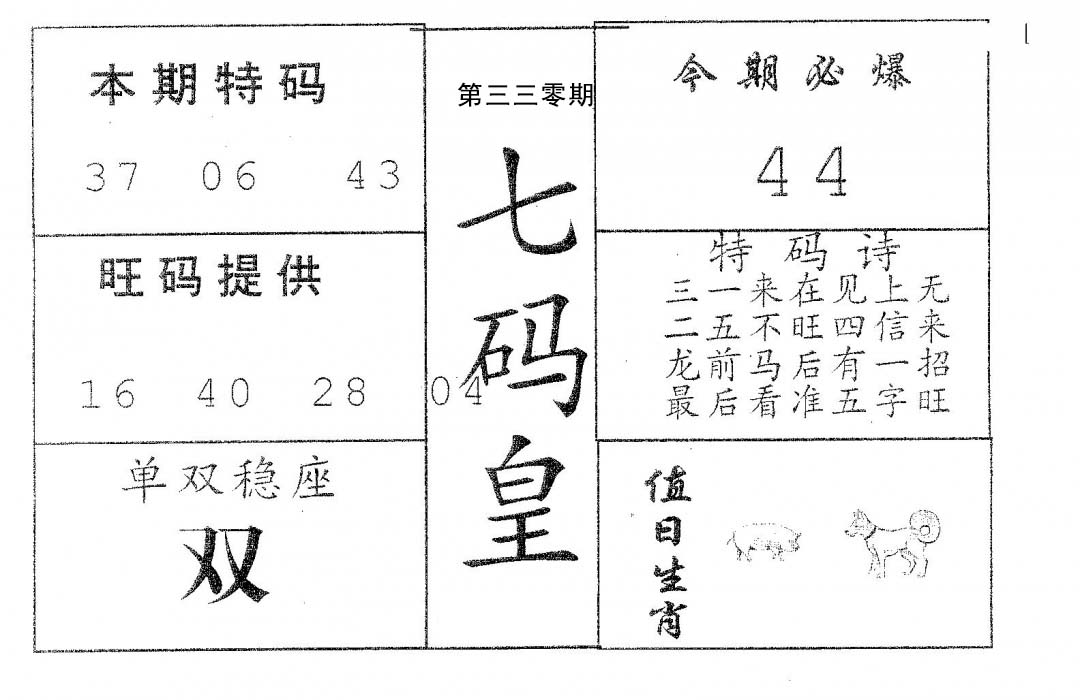 本期特码
37 06 43
旺码提供
16 40 28 04
单双稳座
双
第三三零期
七码皇
今期必爆
44
特码诗
三一来在见上无
二五不旺四信来
龙前马后有一招
最后看准五字旺
值日生肖